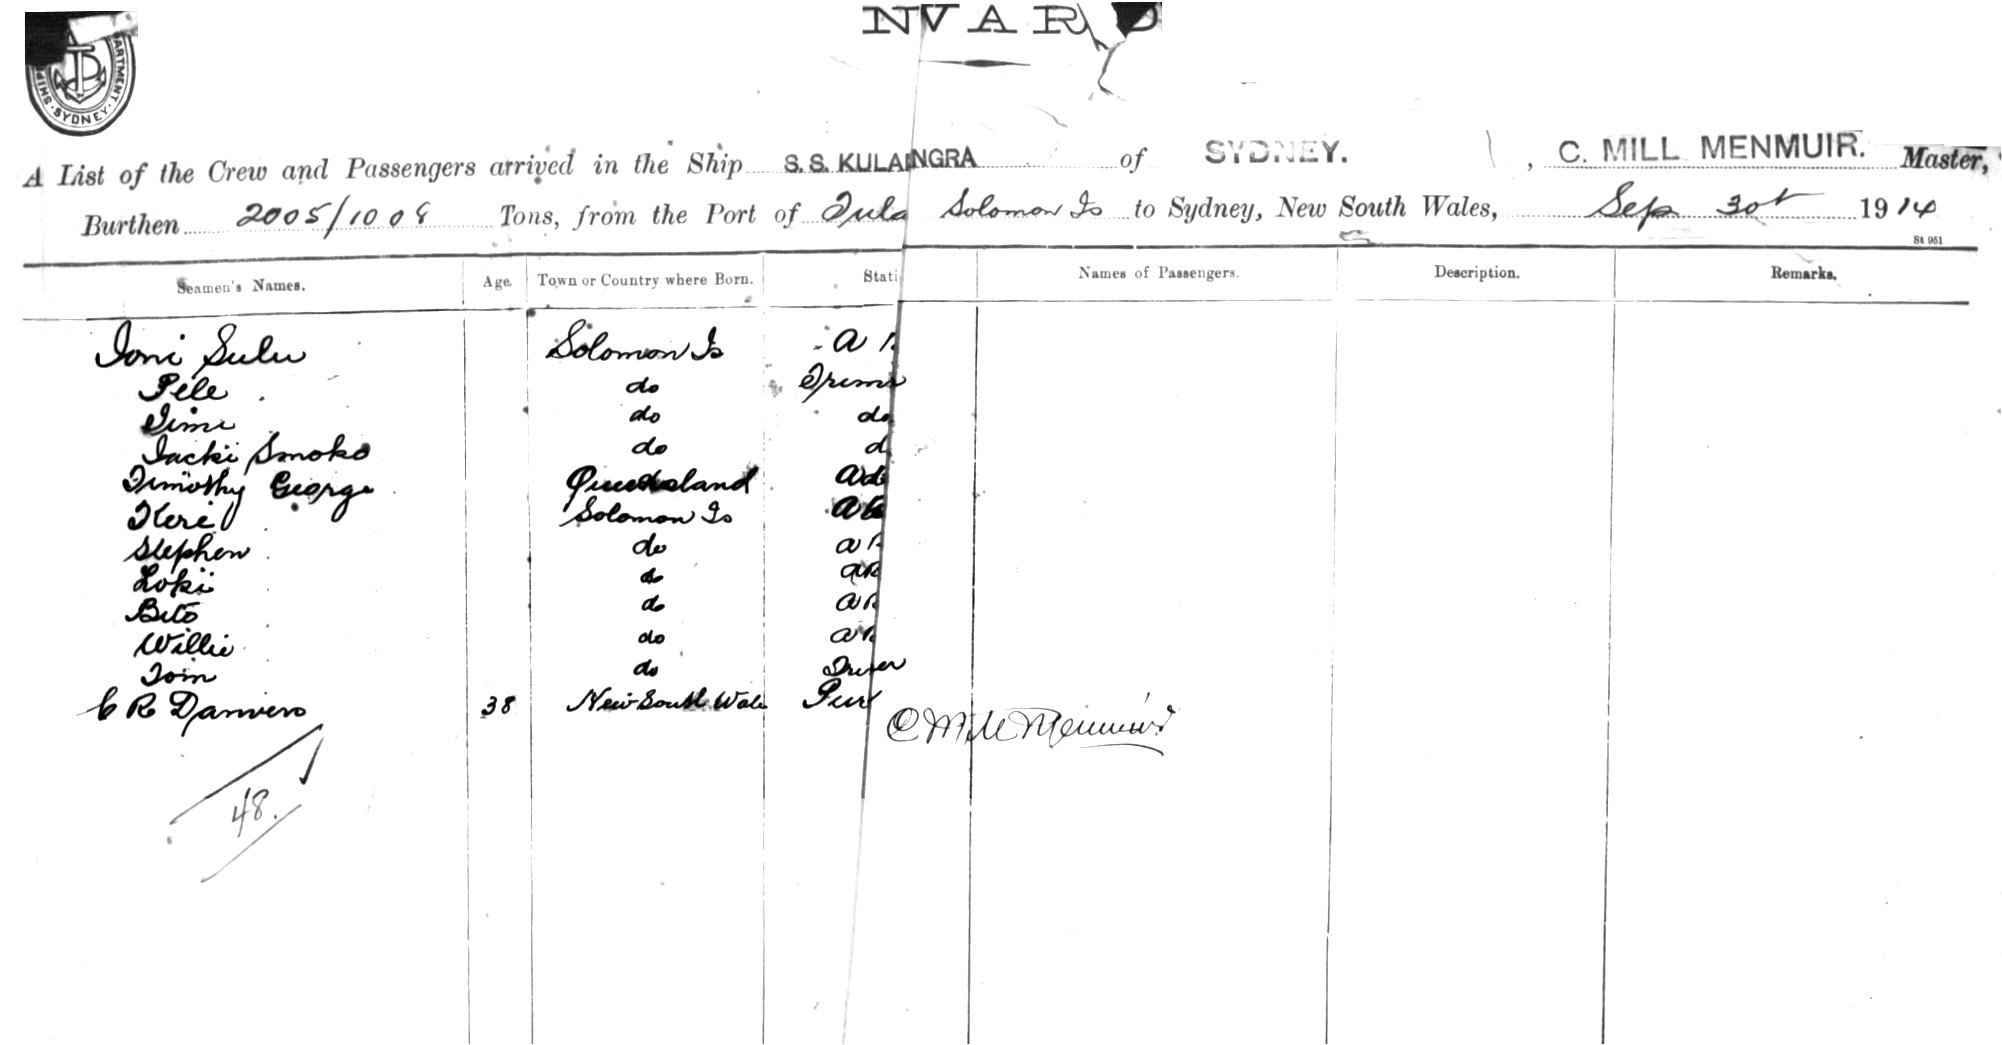 NVARD
SHIP ARTMENT · SYDNEY ·
A List of the Crew and Passengers arrived in the Ship S.S. KULAINGRA of SYDNEY. , C. MILL MENMUIR. Master,
Burthen 2005/1008 Tons, from the Port of Tula Solomon Is to Sydney, New South Wales, Sep 30t 1914
St 961
Seamen's Names. Age. Town or Country where Born. Stati Names of Passengers. Description. Remarks.
Toni Sulu Solomon Is A
Pele do Trim
Jimi do do
Jacki Smoko do d
Timothy George Queensland
Keri Solomon Is AB
Stephen do A
Loki do AB
Beto do A
Willie do A
Tom do
C R Danvers 38 New South Wale Pur
C Mill Menmuir
48.